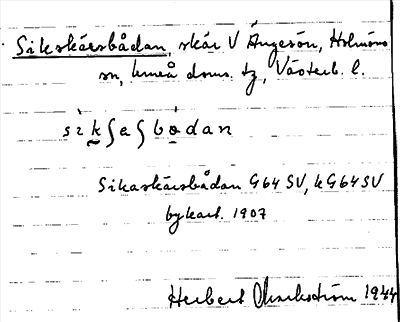 Sikskärsbådan, skär V Ängesön, Holmöns
sn, Umeå doms. tg, Västerb. l.
sikʃaʃbodan
Sikaskärsbådan G64SV, kG64SV
bykart. 1907
Herbert Markström 1944